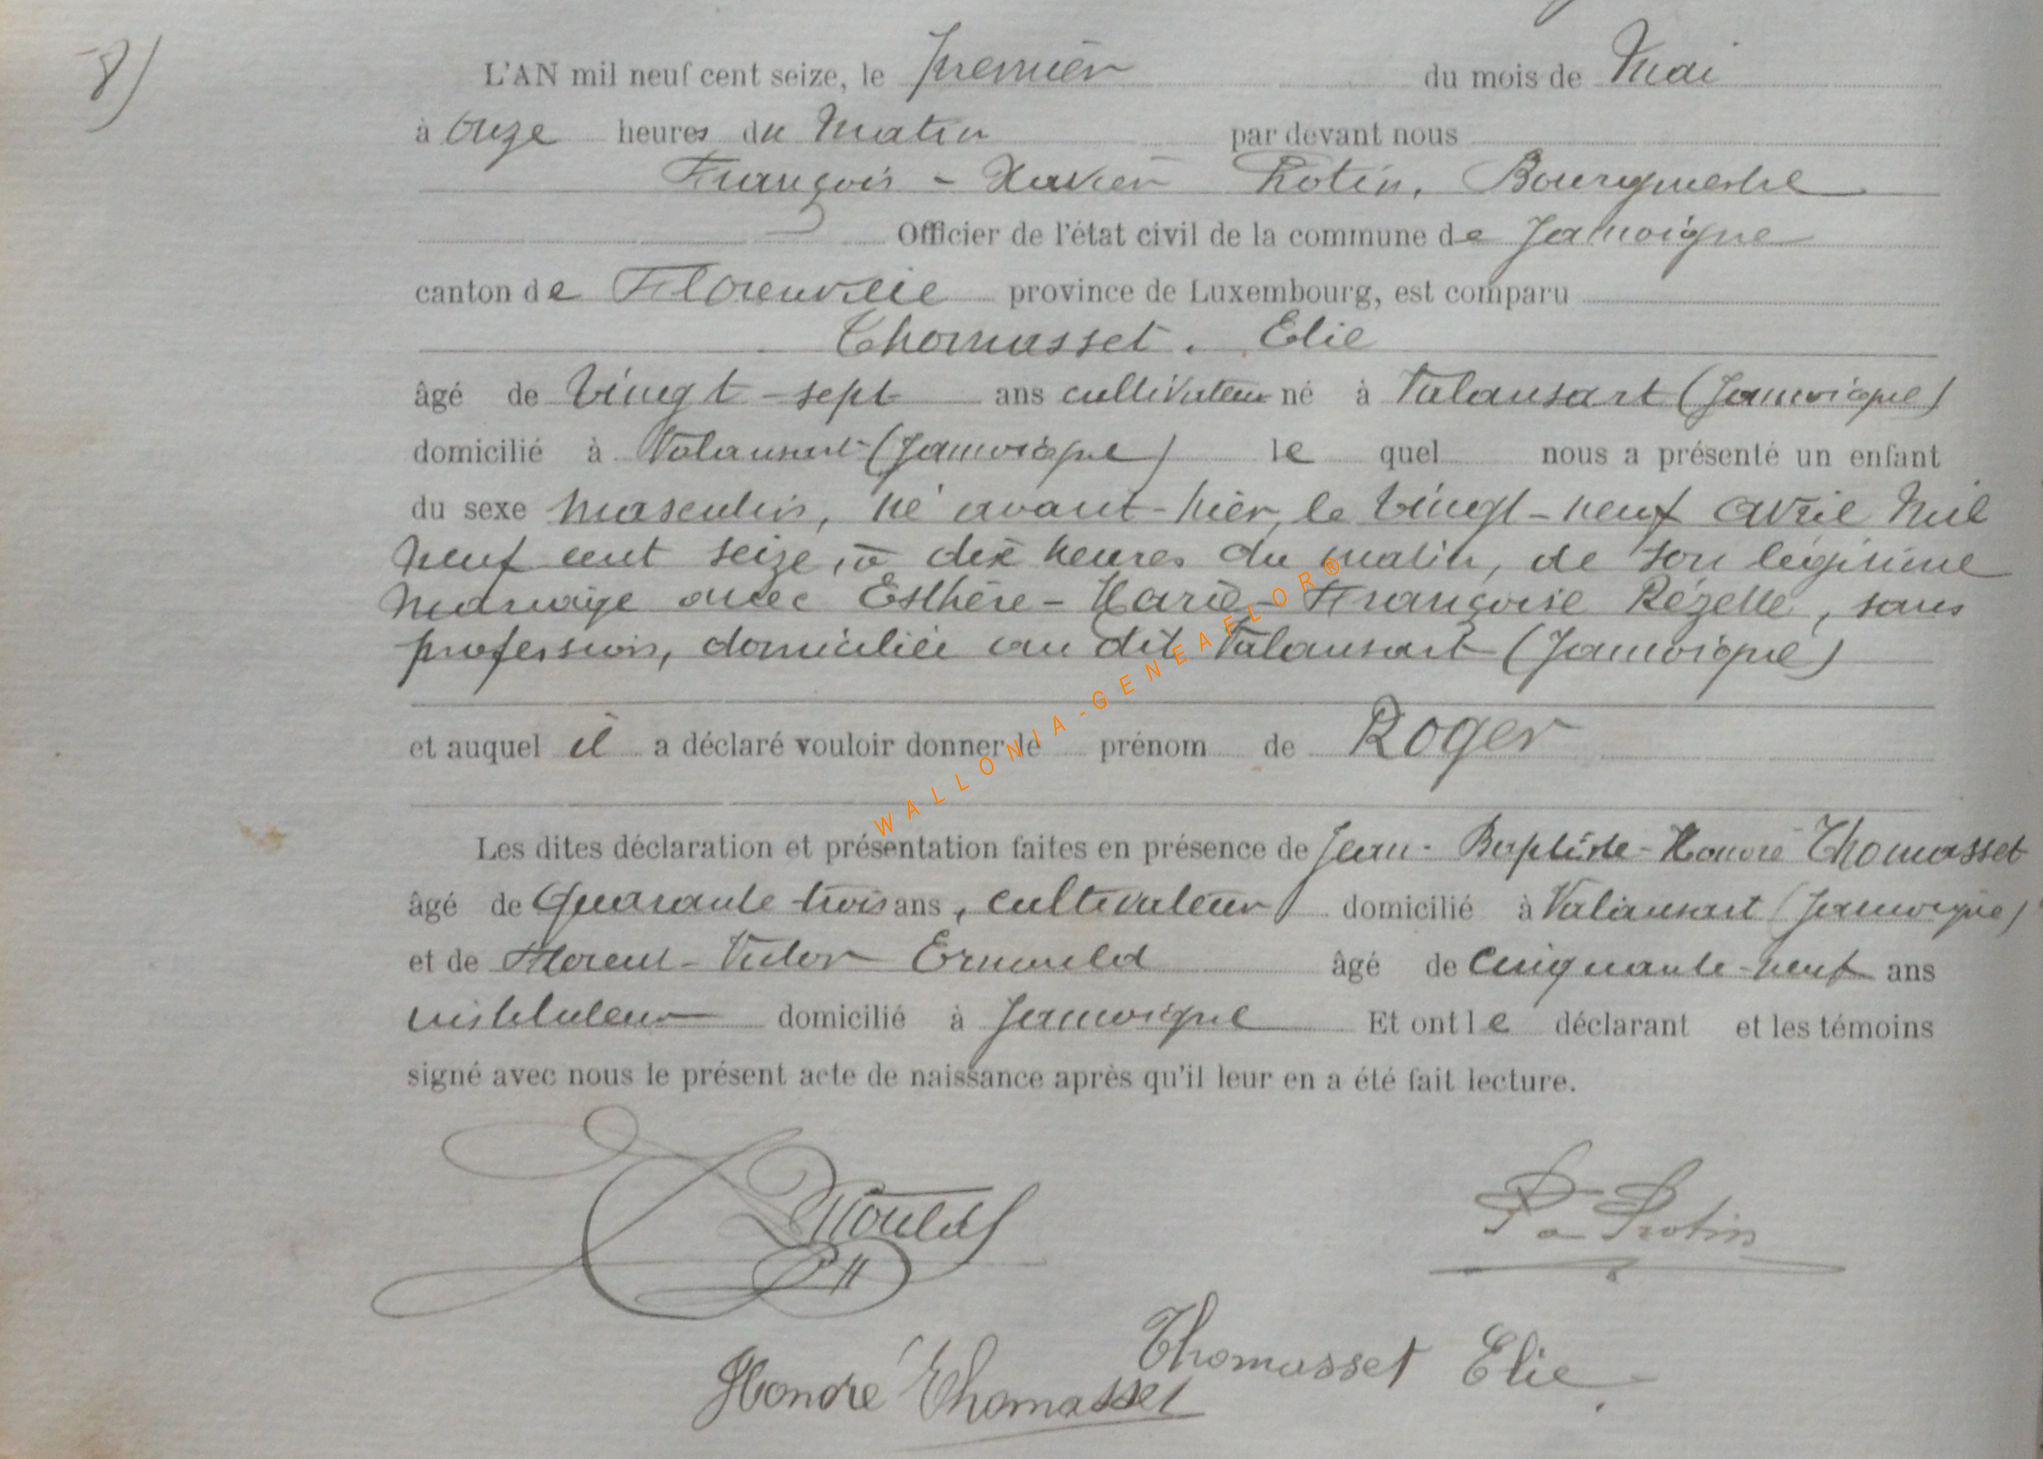 8)
L'AN mil neuf cent seize, le premier du mois de Mai
à Onze heures du Matin par devant nous
François - Xavier Protin, Bourgmestre
Officier de l'état civil de la commune de Jamoigne
canton de Florenville province de Luxembourg, est comparu
Thomasset. Elie
âgé de Vingt-sept ans cultivateur né à Valansart (Jamoigne)
domicilié à Valansart (Jamoigne) le quel nous a présenté un enfant
du sexe masculin, né avant-hier, le vingt-neuf avril mil
neuf cent seize, à dix heures du matin, de son légitime
mariage avec Esthère-Marie-Françoise Rézette, sans
profession, domiciliée au dit Valansart (Jamoigne)
et auquel il a déclaré vouloir donner le prénom de Roger
Les dites déclaration et présentation faites en présence de Jean-Baptiste-Honoré Thomasset
âgé de Quarante trois ans, cultivateur domicilié à Valansart (Jamoigne)
et de Florent-Victor Ermould âgé de Cinquante-neuf ans
instituteur domicilié à Jamoigne Et ont le déclarant et les témoins
signé avec nous le présent acte de naissance après qu'il leur en a été fait lecture.
Protin
Thomasset Elie.
Honoré Thomasset
WALLONIA-GENEAFLOR®